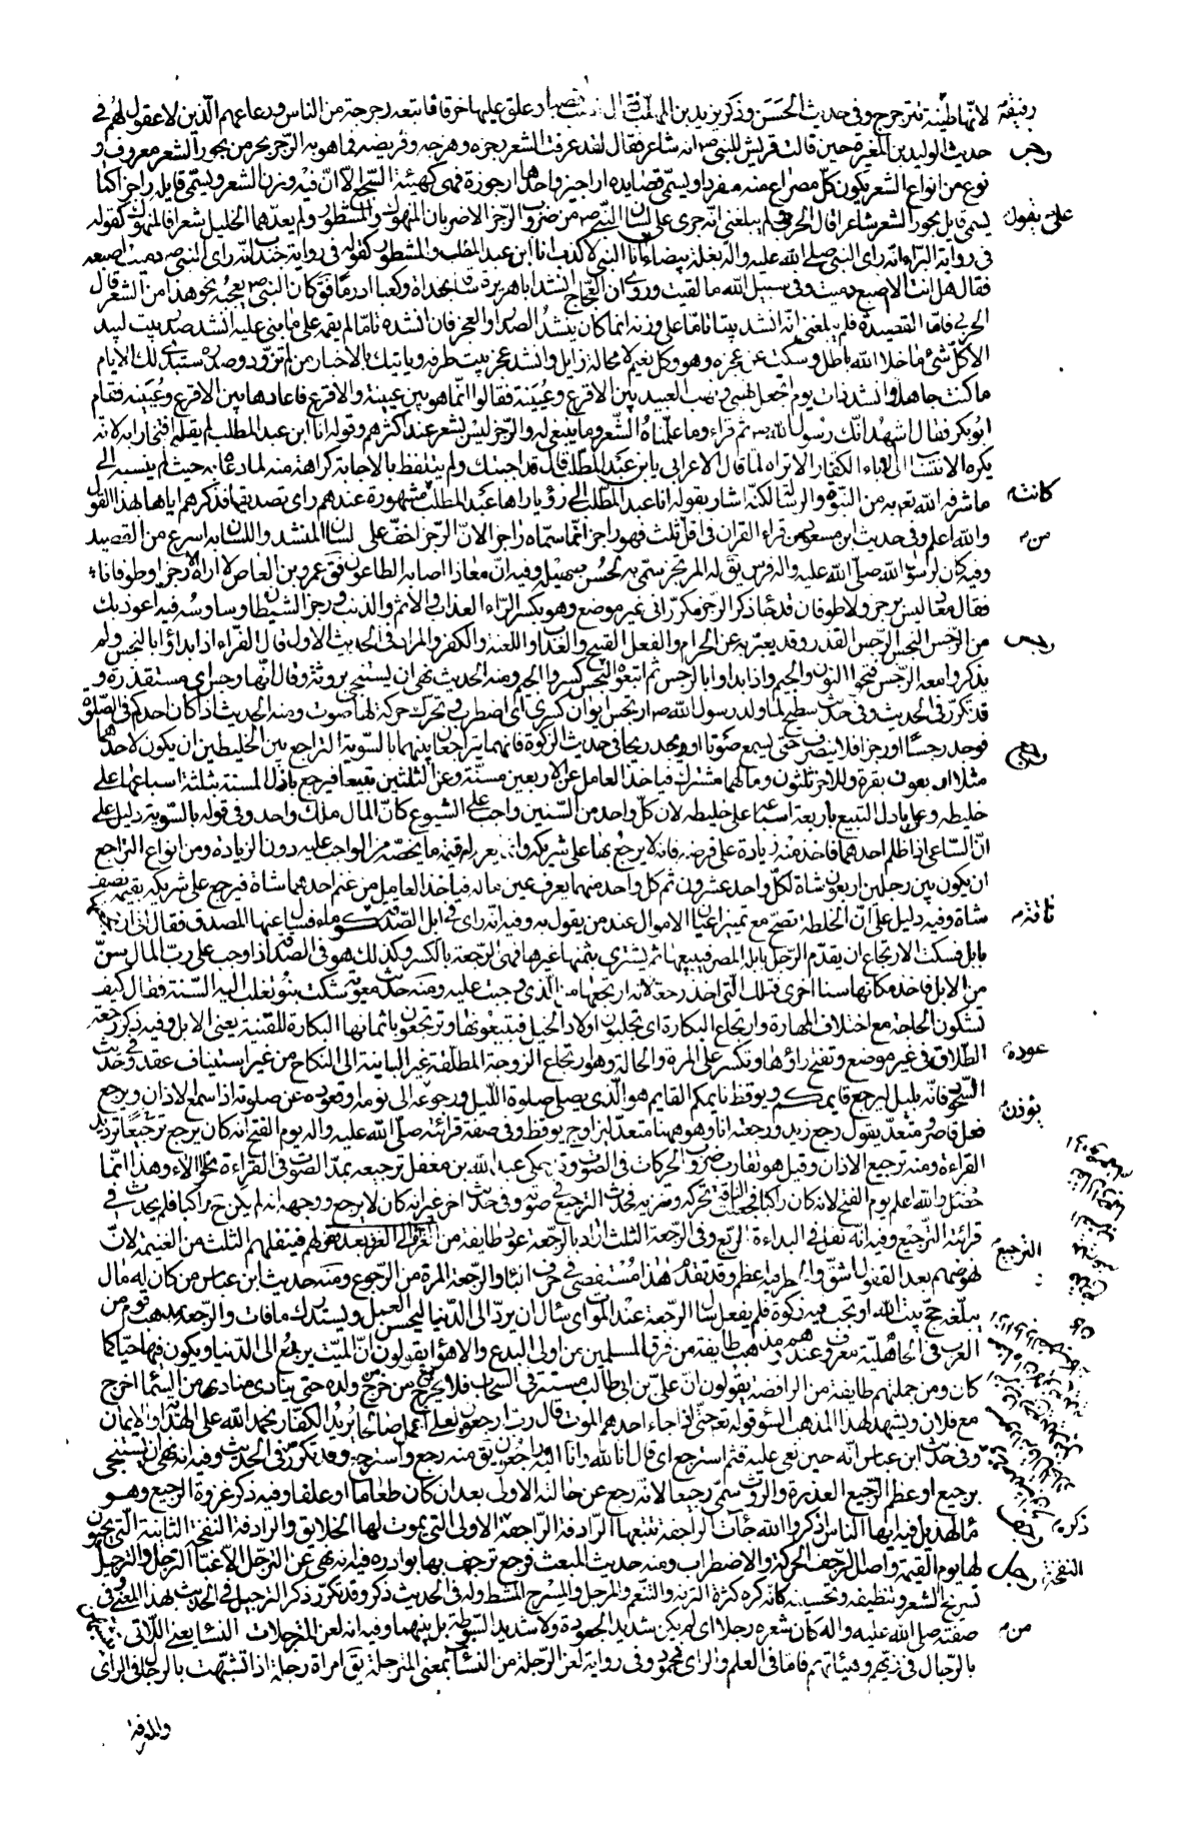 لانها طينة تترجرج وفى حديث الحسن وذكر يزيد بن المهلب فقال نصب علق عليها خرقا فاتبعه رجرجة من الناس ورعاعهم الذين لا عقول لهم فى
حديث الوليد بن المغيرة حين قالت قريش للنبى انه شاعر فقال لقد عرفت الشعر رجزه وهزجه وقريضه فما هو به الرجز بحر من بحور الشعر معروف و
نوع من انواع الشعر يكون كل مصراع منه مفردا ويسمى قصايده اراجيز واحدها ارجوزة فهى كهيئة السجع الا انه فى وزن الشعر ويسمى قايله راجزا كما
يسمى قايل بحور الشعر شاعرا قال الحربى ولم يبلغنى انه جرى على لسان النبى من ضروب الرجز الا ضربان المنهوك والمشطور ولم يعدهما الخليل شعرا فالمنهوك كقوله
فى رواية البراء انه راى النبى صلى الله عليه واله على بغلة بيضاء يقول انا النبى لا كذب انا ابن عبد المطلب والمشطور كقوله فى رواية جندب انه راى النبى دميت اصبعه
فقال هل انت الا اصبع دميت وفى سبيل الله ما لقيت وروى ان العجاج انشد ابا هريرة ساقا بخنداة وكعبا ادرما فقال كان النبى يعجبه نحو هذا من الشعر قال
الحربى فاما القصيدة فلم يبلغنى انه انشد بيتا تاما على وزنه انما كان ينشد الصدر او العجز فان انشده تاما لم يقمه على ما بنى عليه انشد صدر بيت لبيد
الا كل شئ ما خلا الله باطل وسكت عن عجزه وهو وكل نعيم لا محالة زايل وانشد عجز بيت طرفه وياتيك بالاخبار من لم تزود وصدره ستبدى لك الايام
ما كنت جاهلا وانشد ذات يوم اتجعل نهبى ونهب العبيد بين الاقرع وعيينة فقالوا انما هو بين عيينة والاقرع فاعادها بين الاقرع وعيينه فقام
ابو بكر فقال اشهد انك رسول الله ثم قراء وما علمناه الشعر وما ينبغى له والرجز ليس بشعر عند اكثرهم وقوله انا ابن عبد المطلب لم يقله افتخارا به لانه
يكره الانتساب الى الاباء الكفار الا تراه لما قال الاعرابى يا بن عبد المطلب قال قد اجبتك ولم يتلفظ بالاجابة كراهة منه لما دعاه به حيث لم ينسبه الى
ما شرفه الله به من النبوة والرسالة لكنه اشار بقوله انا ابن عبد المطلب الى رؤيا راها عبد المطلب مشهورة عندهم راى تصديقها فذكرهم اياها بهذا القول
والله اعلم وفى حديث ابن مسعود من قراء القران فى اقل من ثلث فهو راجز انما سماه راجزا لان الرجز اخف على لسان المنشد واللسان به اسرع من القصيد
وفيه كان لرسول الله صلى الله عليه واله فرس يق له المرتجز سمى به لحسن صهيله وفيه ان معاذا اصابه الطاعون فقال عمرو بن العاص لا اراه الا رجزا وطوفانا
فقال معاذ ليس برجز ولا طوفان قد جاء ذكر الرجز مكررا فى غير موضع وهو بكسر الراء العذاب والاثم والذنب ورجز الشيطان وساوسه فيه اعوذ بك
من الرجس النجس الرجس القذر وقد يعبر به عن الحرام والفعل القبيح والعذاب واللعنة والكفر والمراد فى الحديث الاول قال الفراء اذا بدؤا بالنجس ولم
يذكروا معه الرجس فتحوا النون والجيم واذا بداوا بالرجس ثم اتبعوه النجس كسروا الجيم ومنه الحديث نهى ان يستنجى بروثة وقال انها رجس اى مستقذرة و
قد تكرر فى الحديث وفى حديث سطيح لما ولد رسول الله ارتجس ايوان كسرى اى اضطرب وتحرك حركة لها صوت ومنه الحديث اذا كان احدكم فى الصلوة
فوجد رجسا او رجزا فلا ينصرف حتى يسمع صوتا او يجد ريحا فى حديث الزكوة فانهما يتراجعان بينهما بالسوية التراجع بين الخليطين ان يكون لاحدهما
مثلا اربعون بقرة وللاخر ثلثون ومالهما مشترك فياخذ العامل عن الاربعين مسنة وعن الثلثين تبيعا فيرجع باذل المسنة بثلثة اسباعها على
خليطه وعلى باذل التبيع باربعة اسباعه على خليطه لان كل واحد من السنين واجب على الشيوع كان المال ملك واحد وفى قوله بالسوية دليل على
ان الساعى اذا ظلم احدهما فاخذ منه زيادة على فرضه فانه لا يرجع بها على شريكه وانما يغرم له قيمة ما يخصه من الواجب عليه دون الزيادة ومن انواع التراجع
ان يكون بين رجلين اربعون شاة لكل واحد عشرون ثم كل واحد منهما يعرف عين ماله فياخذ العامل من غنم احدهما شاة فيرجع على شريكه بقيمة نصف
شاة وفيه دليل على ان الخلطة تصح مع تميز اعيان الاموال عند من يقول به وفيه انه راى فى ابل الصدقة كوماء فسال عنها المصدق فقال انى
بابل فسكت الارتجاع ان يقدم الرجل بابله المصر فيبيعها ثم يشترى بثمنها غيرها فهى الرجعة بالكسر وكذلك هو فى الصدقة اذا وجب على رب المال سن
من الابل فاخذ مكانها سنا اخرى فتلك التى اخذ رجعة لانه ارتجعها من الذى وجبت عليه ومنه حديث معوية شكت بنو تغلب اليه السنة فقال كيف
تشكون الحاجة مع اختلاف المهارة وارتجاع البكارة اى تجلبون اولاد الخيل فتبيعونها وترتجعون باثمانها البكارة للقنية يعنى الابل وفيه ذكر رجعة
الطلاق فى غير موضع وتفتح راؤها وتكسر على المرة والحالة وهو ارتجاع الزوجة المطلقة غير الباينة الى النكاح من غير استيناف عقد وفى حديث
السحور فانه يؤذن بليل ليرجع قايمكم ويوقظ نايمكم القايم هو الذى يصلى صلوة الليل ورجوعه الى نومه او قعوده عن صلوته اذا سمع الاذان ويرجع
فعل قاصر ومتعد يقول رجع زيد ورجعته انا وهو ههنا متعد ليزاوج يوقظ وفى صفة قرائته صلى الله عليه واله يوم الفتح انه كان يرجع الترجيع ترديد
القراءة ومنه ترجيع الاذان وقيل هو تقارب ضروب الحركات فى الصوت وقد حكى عبد الله بن مغفل ترجيعه بمد الصوت فى القراءة نحو آ آ آ وهذا انما
حصل والله اعلم يوم الفتح لانه كان راكبا فجعلت الناقة تحركه وتنزيه فحدث الترجيع فى صوته وفى حديث اخر غير انه كان لا يرجع ووجهه انه لم يكن ح راكبا فلم يحدث فى
قرائته الترجيع وفيه انه نفل فى البداءة الربع وفى الرجعة الثلث اراد بالرجعة عود طايفة من الغزاة الى الغزو بعد قفولهم فينفلهم الثلث من الغنيمة لان
نهوضهم بعد القفول اشق والخطر فيه اعظم وقد تقدم هذا مستقصى فى حرف الباء والرجعة المرة من الرجوع ومنه حديث ابن عباس من كان له مال
يبلغه حج بيت الله او تجب فيه زكوة فلم يفعل سال الرجعة عند الموت اى سال ان يرد الى الدنيا ليحسن العمل ويستدرك ما فات والرجعة مذهب قوم من
العرب فى الجاهلية معروف عندهم ومذهب طايفة من فرق المسلمين من اولى البدع والاهواء يقولون ان الميت يرجع الى الدنيا ويكون فيها حيا كما
كان ومن جملتهم طايفة من الرافضة يقولون ان على بن ابى طالب مستتر فى السحاب فلا يخرج مع من خرج من ولده حتى ينادى مناد من السماء اخرج
مع فلان ويشهد لهذا المذهب السوء قوله تع حتى اذا جاء احدهم الموت قال رب ارجعون لعلى اعمل صالحا يريد الكفار نحمد الله على الهداية والايمان
وفى حديث ابن عباس انه حين نعى عليه قثم استرجع اى قال انا لله وانا اليه راجعون يق منه رجع واسترجع وقد تكرر فى الحديث وفيه انه نهى ان يستنجى
برجيع او عظم الرجيع العذرة والروث سمى رجيعا لانه رجع عن حالته الاولى بعد ان كان طعاما او علفا وفيه ذكر غزوة الرجيع وهو
ماء لهذيل فيه ايها الناس اذكروا الله جاءت الراجفة تتبعها الرادفة الراجفة الاولى التى يموت لها الخلائق والرادفة النفخة الثانية التى يحيون
لها يوم القيمة واصل الرجف الحركة والاضطراب ومنه حديث المبعث فرجع ترجف بها بوادره فيه انه نهى عن الترجل الا غبا الترجل والترجيل
تسريح الشعر وتنظيفه وتحسينه كانه كره كثرة الترفه والتنعم والمرجل والمسرح المشط وله فى الحديث ذكر وقد تكرر ذكر الترجيل فى الحديث بهذا المعنى وفى
صفته صلى الله عليه واله كان شعره رجلا اى لم يكن شديد الجعودة ولا شديد السبوطة بل بينهما وفيه انه لعن المترجلات من النساء يعنى اللاتى
بالرجال فى زيهم وهيئاتهم فاما فى العلم والراى فمحمود وفى رواية لعن الرجلة من النساء بمعنى المترجلة يق امراة رجلة اذا تشبهت بالرجل فى الراى
والمعرفة
رجز
كانت
من
رجس
رجع
عودة
يؤذن
الترجيع
رجف
ذكره
النفخة
رجل
من